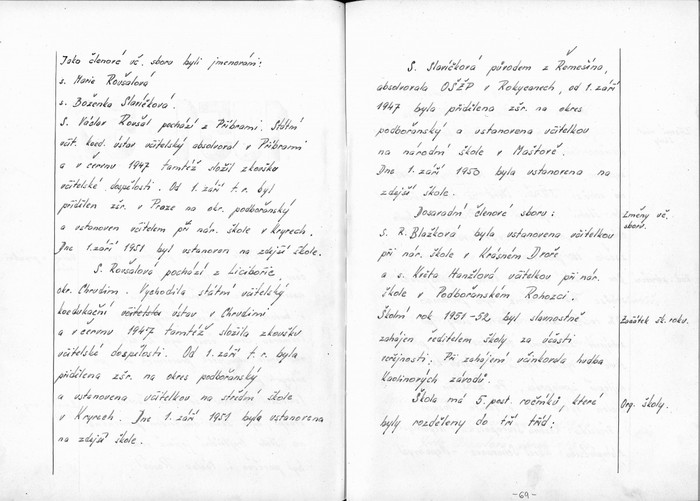 Jako členové uč. sboru byli jmenováni:
s. Marie Roušalová
s. Boženka Slavíčková.
S. Václav Roušal pochází z Příbrami. Státní
koed. ústav učitelský absolvoval v Příbrami
a v červnu 1947 tamtéž složil zkoušku
učitelské dospělosti. Od 1. září t. r. byl
přidělen zšr. v Praze na okr. podbořanský
a ustanoven učitelem při nár. škole v Kryrech.
Dne 1. září 1951 byl ustanoven na zdejší škole.
S. Roušalová pochází z Licibořic,
okr. Chrudim. Vychodila státní učitelský
koedukační učitelský ústav v Chrudimi
a v červnu 1947 tamtéž složila zkoušku
učitelské dospělosti. Od 1. září t. r. byla
přidělena zšr. na okres podbořanský
a ustanovena učitelkou na střední škole
v Kryrech. Dne 1. září 1951 byla ustanovena
na zdejší škole.
S. Slavíčková původem z Řemešína,
absolvovala OŠŽP v Rokycanech, od 1. září
1947 byla přidělena zšr. na okres
podbořanský a ustanovena učitelkou
na národní škole v Mašťově.
Dne 1. září 1950 byla ustanovena na
zdejší škole.
Dosavadní členové sboru:
s. R. Blažková byla ustanovena učitelkou
při nár. škole v Krásném Dvoře
a s. Květa Hanžlová učitelkou při nár.
škole v Podbořanském Rohozci.
Školní rok 1951-52 byl slavnostně
zahájen ředitelem školy za účasti
veřejnosti. Při zahájení účinkovala hudba
Kaolinových závodů.
Škola má 5. post. ročníků, které
byly rozděleny do tří tříd:
Změny uč.
sboru.
Začátek šk. roku.
Org. školy.
-69-